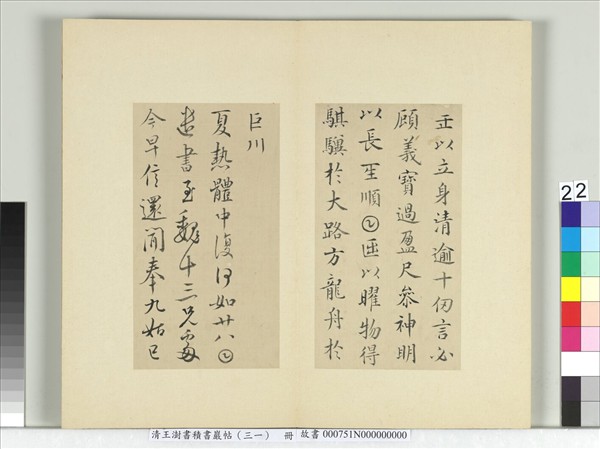 以立身清逾十仞言必
顧義寶過盈尺參神明
以長𤯔順𡆠以曜物得
騏驥於大路方龍舟於
巨川
夏熱體中復何如廿八𡆠
遣書至魏十三兄處
今早信還聞奉九姑已
22
清王澍書積書巖帖(三一) 冊 故書 000751N000000000